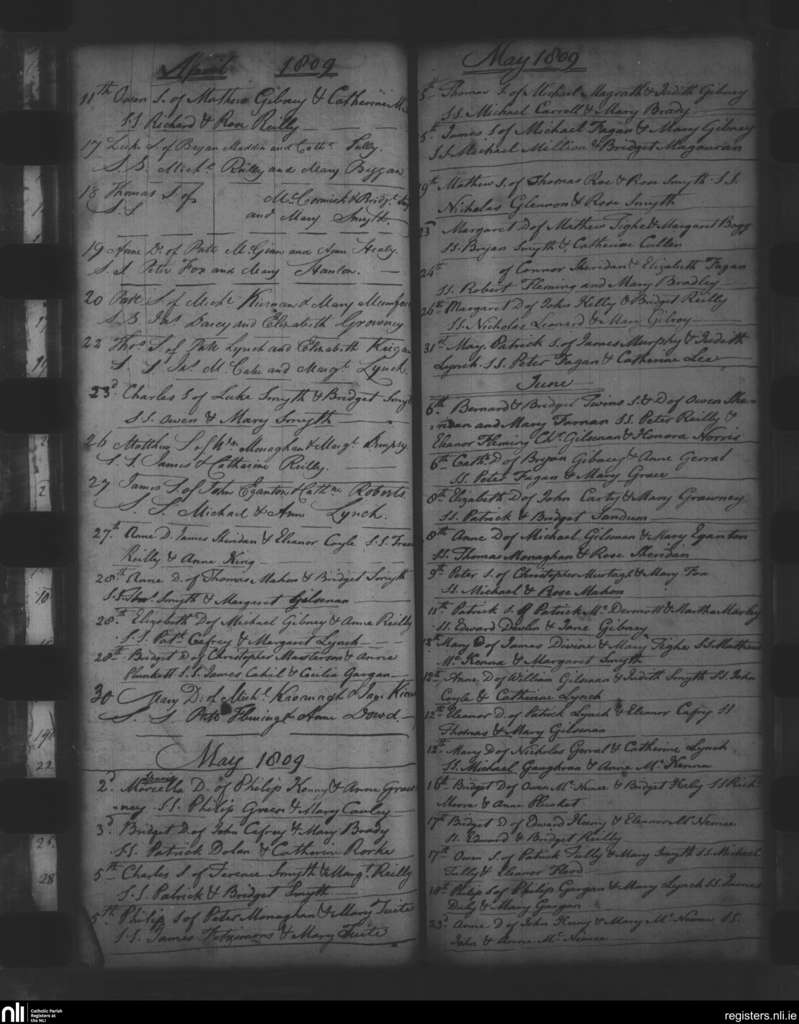 April 1809
11th Owen S. of Mathew Gibney & Catherine
S.S Richard & Rose Reilly
17 Luke S. of Bryan Madden and Cathn. Tully.
S.S. Michl. Reilly and Mary Biggan
18 Thomas S. of McCormick & Bridgt.
S.S and Mary Smyth.
19 Anne D. of Patk McGinn and Ann Healy.
S.S Peter Fox and Mary Hanlon.
20 Patk S. of Michl. Kiernan & Mary
S.S Darcy and Elizabeth Growney
22 Thos. S. of Patk Lynch and Elizabeth
S.S Jas. McCabe and Margt. Lynch.
23d. Charles S of Luke Smyth & Bridget
S.S. Owen & Mary Smyth
26 Matthew S. of Wm. Monaghan & Margt. Dempsy
S.S James & Catherine Reilly.
27 James S. of John Eganton & Cathn Roberts
S.S. Michael & Ann Lynch.
27th. Anne D. James Sheridan & Eleanor Coyle S.S.
Reilly & Anne King
28th Anne D. of Thomas Mahon & Bridget Smyth
S.S. Smyth & Margaret Gilsenan
28th. Elizabeth D of Michael Gibney & Anne Reilly
S.S. Patk. Cafrey & Margaret Lynch
28th Bridget D of Christopher Masterson & Anne
Plunkett S.S. James Cahil & Cecilia Gargan
30 Mary D. of Michl.
S.S Patk Fleming & Anne Dowd
May 1809
2d. D. of Philip Kenny & Anne
S.S. Philip Green & Mary Cauley
3d. Bridget D. of John Cafrey & Mary Brady
S.S. Patrick Dolan & Catherin Rorke
5th Charles S of Terence Smyth & Margt. Reilly
S.S Patrick & Bridget Smyth
5th. Philip S of Peter Monaghan & Mary Tuite
S.S. James Fitzsimons & Mary Tuite
May 1809
5th Thomas S. of Michael Magrath & Judith Gibney
S.S. Michael Carroll & Mary Brady
5th James S of Michael Fagan & Mary Gibney
S.S. Michael & Bridget Magauran
19th Mathew S. of Thomas Roe & Rose Smyth S.S.
Nicholas Glennon & Rose Smyth
23d Margaret D of Mathew Tighe & Margaret
S.S. Bryan Smyth & Catherine Cullen
24th of Connor Sheridan & Elizabeth Fagan
S.S. Robert Fleming and Mary Bradley
26th Margaret D of John Kelly & Bridget Reilly
S.S Nicholas Leonard & Mary Gilroy
31st May, Patrick S. of James Murphy & Judith
Lynch S.S. Peter Fagan & Catherine Lee
June
6th Bernard & Bridget Twins S. & D of Owen
and Mary S.S. Peter Reilly &
Eleanor Fleming Chs. Gilsenan & Honora Norris
6th Cath: D of Bryan Gibney & Anne Gerrat
S.S. Peter Fagan & Mary Grace
8th Elizabeth D of John Carty & Mary Growney
S.S. Patrick & Bridget
8th Anne D of Michael Gilsenan & Mary Eganton
S.S. Thomas Monaghan & Rose Sheridan
9th Peter S. of Christopher Murtagh & Mary Fox
SS Michael & Rose Mahon
11th Patrick S. of Patrick McDermott & Martha
SS. Edward Devlin & Jane Gibney
12th Mary D of James Divine & Mary Tighe S.S. Mathew
McKenna & Margaret Smyth
12th Anne D. of William Gilsenan & Judith Smyth SS John
Coyle & Catherine Lynch
12th Eleanor D. of Patrick Lynch & Eleanor Cafry SS
Thomas & Mary Gilsenan
12th Mary D of Nicholas Gerrat & Catherine Lynch
SS. Michael Gaughran & Anne McKenna
16th Bridget D of Owen McNamee & Bridget SS
& Anne Plunket
17th Bridget D of Edward Heany & Eleanor McNamee
SS. Edward & Bridget Reilly
17th Owen S. of Patrick Tully & Mary Smyth SS Michael
Tully & Eleanor
18th Philip S of Philip Gargan & Mary Lynch SS. James
Duly & Mary Gargan
23d Anne D of John & Mary McNamee SS.
John & Anne McNamee
nli
Catholic Parish
Registers at
the NLI
registers.nli.ie